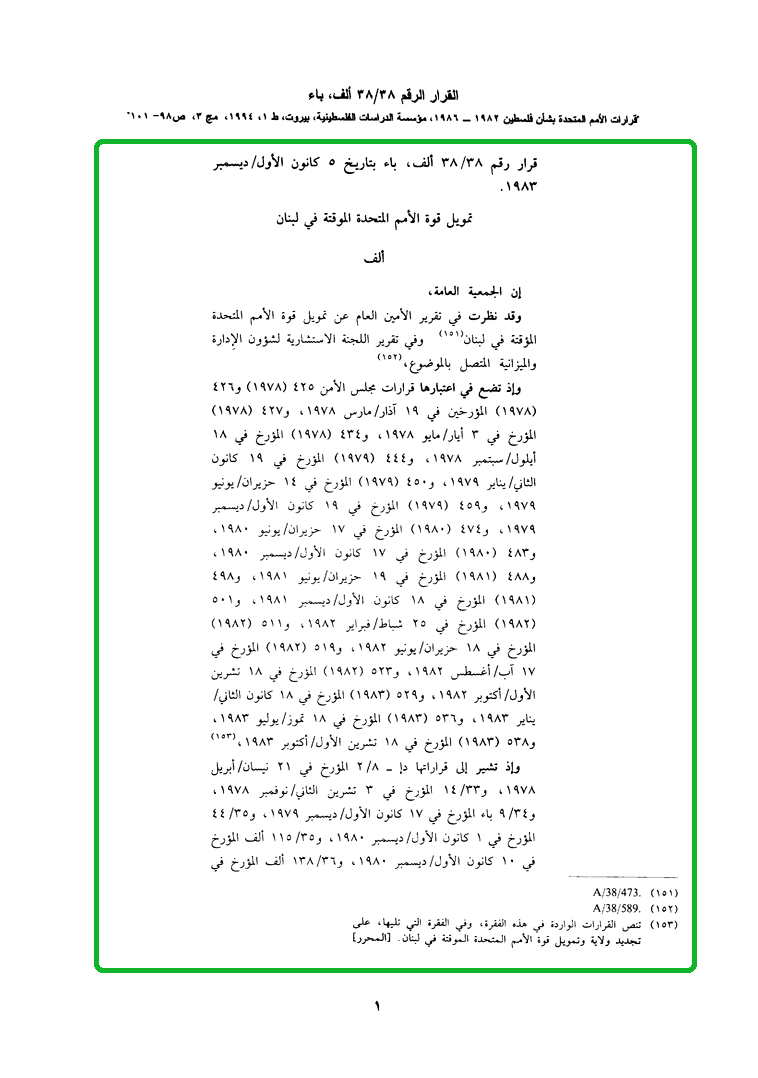 القرار الرقم ٣٨/٣٨ ألف، باء
"قرارات الأمم المتحدة بشأن فلسطين ١٩٨٢ ــ ١٩٨٦، مؤسسة الدراسات الفلسطينية، بيروت، ط ١، ١٩٩٤، مج ٣، ص٩٨- ١٠١"
قرار رقم ٣٨/٣٨ ألف، باء بتاريخ ٥ كانون الأول/ديسمبر
١٩٨٣.
تمويل قوة الأمم المتحدة الموقتة في لبنان
ألف
إن الجمعية العامة،
وقد نظرت في تقرير الأمين العام عن تمويل قوة الأمم المتحدة
المؤقتة في لبنان(١٥١) وفي تقرير اللجنة الاستشارية لشؤون الإدارة
والميزانية المتصل بالموضوع،(١٥٢)
وإذ تضع في اعتبارها قرارات مجلس الأمن ٤٢٥ (١٩٧٨) و٤٢٦
(١٩٧٨) المؤرخين في ١٩ آذار/مارس ١٩٧٨، و٤٢٧ (١٩٧٨)
المؤرخ في ٣ أيار/مايو ١٩٧٨، و٤٣٤ (١٩٧٨) المؤرخ في ١٨
أيلول/سبتمبر ١٩٧٨، و٤٤٤ (١٩٧٩) المؤرخ في ١٩ كانون
الثاني/يناير ١٩٧٩، و٤٥٠ (١٩٧٩) المؤرخ في ١٤ حزيران/يونيو
١٩٧٩، و٤٥٩ (١٩٧٩) المؤرخ في ١٩ كانون الأول/ديسمبر
١٩٧٩، و٤٧٤ (١٩٨٠) المؤرخ في ١٧ حزيران/يونيو ١٩٨٠،
و٤٨٣ (١٩٨٠) المؤرخ في ١٧ كانون الأول/ديسمبر ١٩٨٠،
و٤٨٨ (١٩٨١) المؤرخ في ١٩ حزيران/يونيو ١٩٨١، و٤٩٨
(١٩٨١) المؤرخ في ١٨ كانون الأول/ديسمبر ١٩٨١، و٥٠١
(١٩٨٢) المؤرخ في ٢٥ شباط/فبراير ١٩٨٢، و٥١١ (١٩٨٢)
المؤرخ في ١٨ حزيران/يونيو ١٩٨٢، و٥١٩ (١٩٨٢) المؤرخ في
١٧ آب/أغسطس ١٩٨٢، و٥٢٣ (١٩٨٢) المؤرخ في ١٨ تشرين
الأول/أكتوبر ١٩٨٢، و٥٢٩ (١٩٨٣) المؤرخ في ١٨ كانون الثاني/
يناير ١٩٨٣، و٥٣٦ (١٩٨٣) المؤرخ في ١٨ تموز/يوليو ١٩٨٣،
و٥٣٨ (١٩٨٣) المؤرخ في ١٨ تشرين الأول/أكتوبر ١٩٨٣،(١٥٣)
وإذ تشير إلى قراراتها دإ ــ ٢/٨ المؤرخ في ٢١ نيسان/أبريل
١٩٧٨، و١٤/٣٣ المؤرخ في ٣ تشرين الثاني/نوفمبر ١٩٧٨،
و٩/٣٤ باء المؤرخ في ١٧ كانون الأول/ديسمبر ١٩٧٩، و٤٤/٣٥
المؤرخ في ١ كانون الأول/ديسمبر ١٩٨٠، و١١٥/٣٥ ألف المؤرخ
في ١٠ كانون الأول/ديسمبر ١٩٨٠، و١٣٨/٣٦ ألف المؤرخ في
(١٥١) A/38/473.
(١٥٢) A/38/589.
(١٥٣) تنص القرارات الواردة في هذه الفقرة، وفي الفقرة التي تليها، على
تجديد ولاية وتمويل قوة الأمم المتحدة الموقتة في لبنان. [المحرر]
١